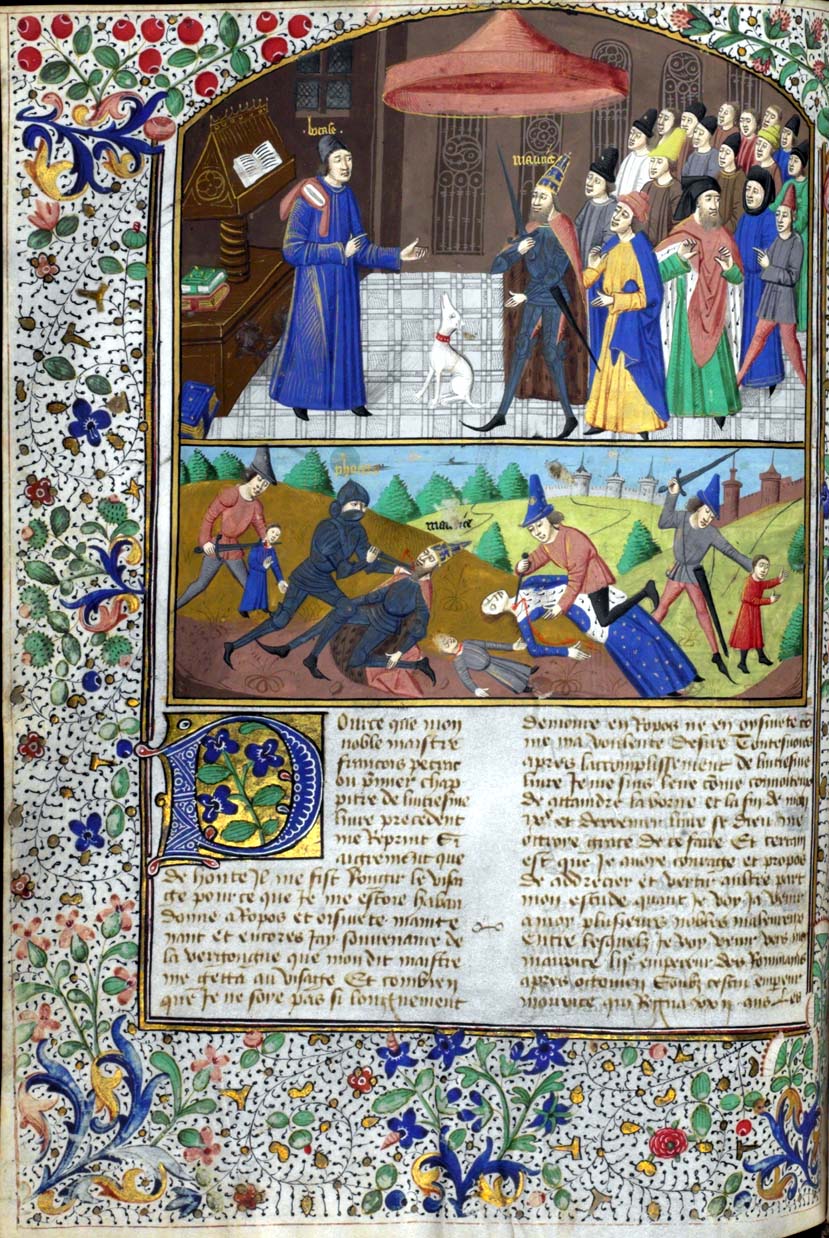 bocase
maurice
phocas
maurice
Pource que mon
noble maistre
francois petrac
ou premier chap
pitre de luitiesme
liure precedent
me Reprint Si
aigrement que
de honte Il me fist Rougir le visa
ge pour ce que Je me estoie haban
donne a Repos et oisiuete mainte
nant et encores Jay souuenance de
la vergongne que mon dit maistre
me getta au visaige Et combien
que Je ne soye pas si longuement
demoure en Repos ne en oysiuete co
me ma voulente desire Toutesuoies
apres lacomplissement de luitiesme
liure Je me suis leue come conuoiteux
de attaindre la borne et la fin de mon
ixe et derrenier liure se dieu me
ottroye grace de ce faire Et certain
est que Je auoye couraige et propos
de addrecier et vertir aultre part
mon estude quant Je voy Ja venir
a moy plusieurs nobles maleureux
Entre lesquelz Je voy venir vers me
maurice empereur des Rommains
apres ottouien Soubz cestui empereur
mourice qui Regna ans Les